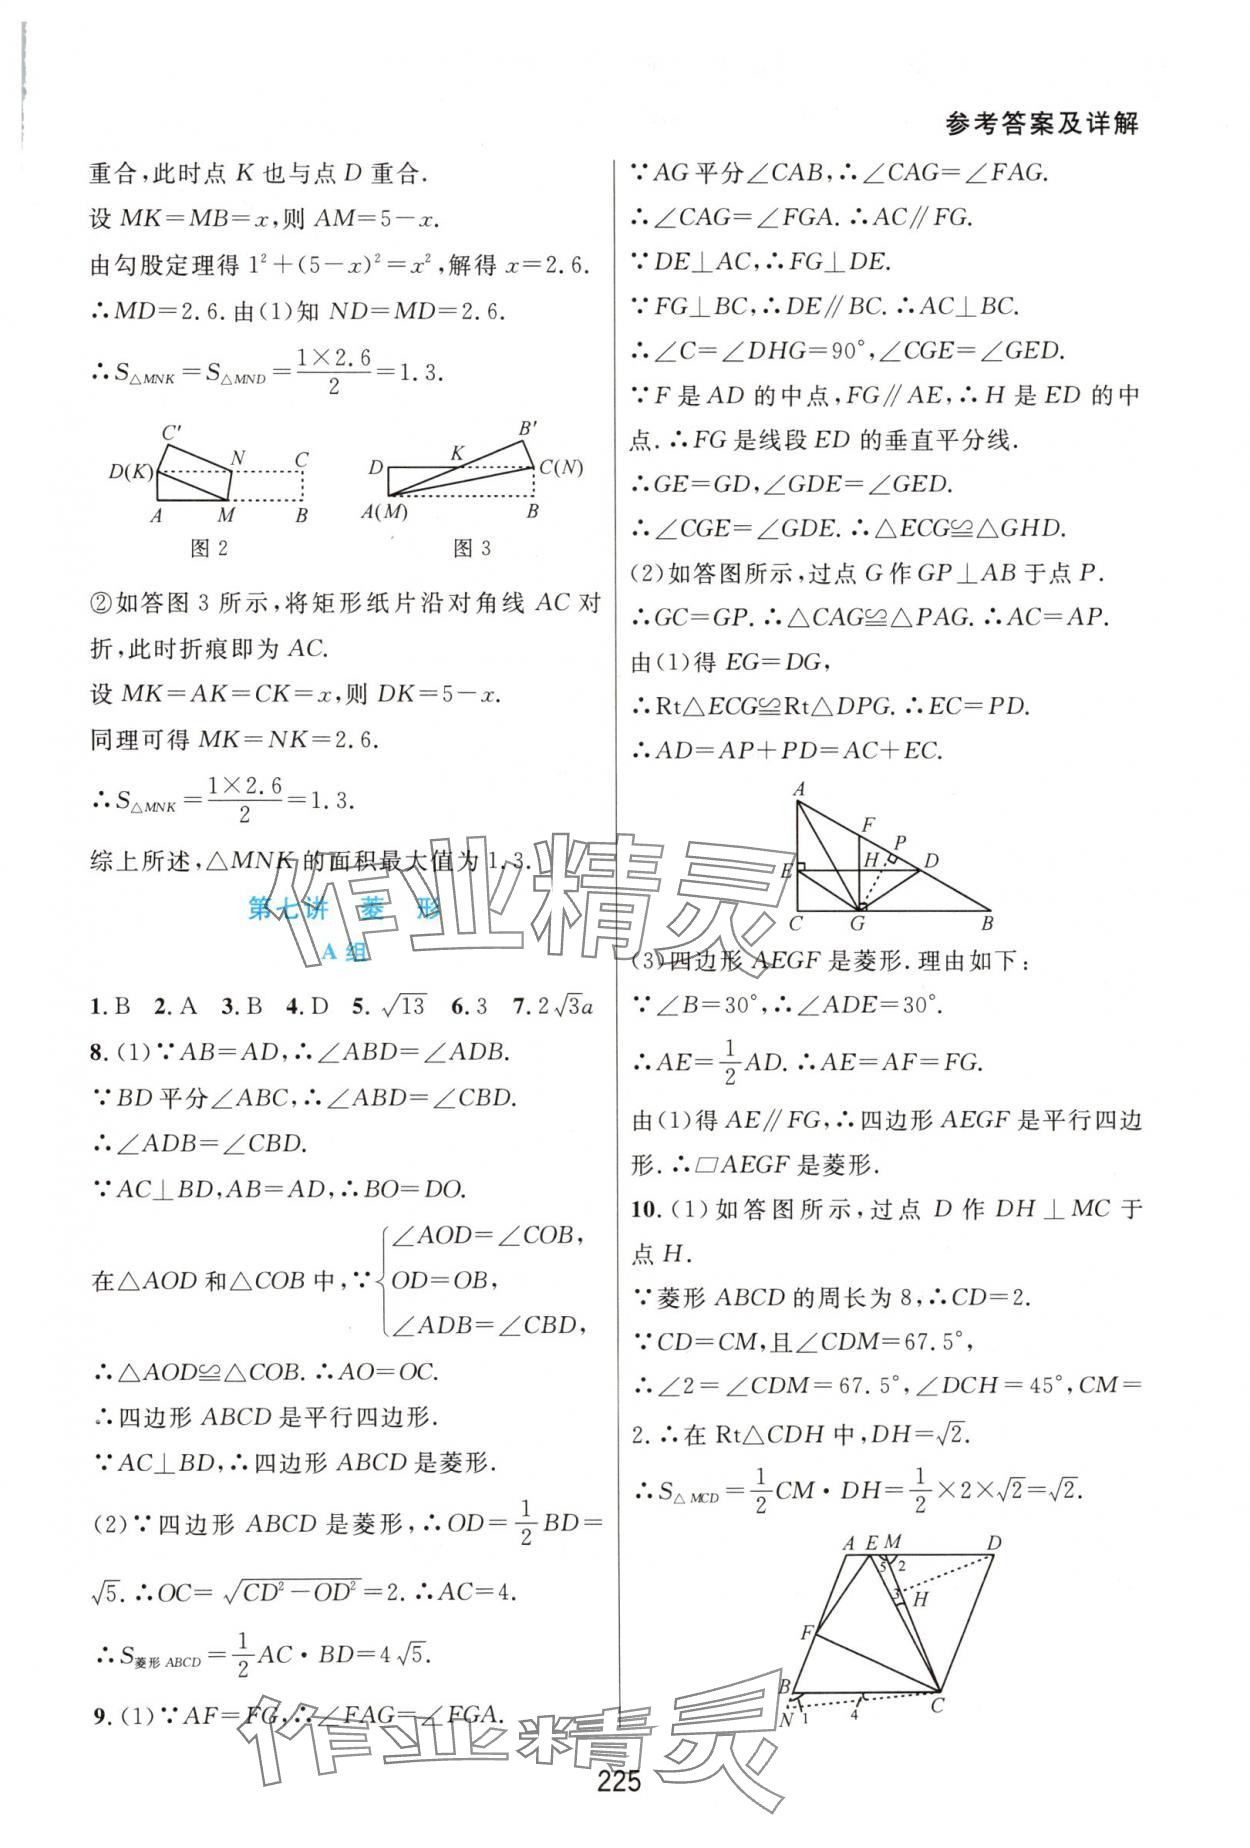 参考答案及详解
重合,此时点 K 也与点 D 重合.
设 MK=MB=x,则 AM=5-x.
由勾股定理得 1²+(5-x)²=x²,解得 x=2.6.
∴MD=2.6.由(1)知 ND=MD=2.6.
∴S△MNK=S△MND=1×2.6/2=1.3.
C′ N C D(K) A M B
图 2
B′ K D C(N) A(M) B
图 3
②如答图 3 所示,将矩形纸片沿对角线 AC 对
折,此时折痕即为 AC.
设 MK=AK=CK=x,则 DK=5-x.
同理可得 MK=NK=2.6.
∴S△MNK=1×2.6/2=1.3.
综上所述,△MNK 的面积最大值为 1.3.
第七讲 菱 形
A 组
1.B 2.A 3.B 4.D 5.√13 6.3 7.2√3a
8.(1)∵AB=AD,∴∠ABD=∠ADB.
∵BD 平分∠ABC,∴∠ABD=∠CBD.
∴∠ADB=∠CBD.
∵AC⊥BD,AB=AD,∴BO=DO.
在△AOD 和△COB 中,∵{∠AOD=∠COB,
OD=OB,
∠ADB=∠CBD,
∴△AOD≌△COB.∴AO=OC.
∴四边形 ABCD 是平行四边形.
∵AC⊥BD,∴四边形 ABCD 是菱形.
(2)∵四边形 ABCD 是菱形,∴OD=1/2BD=
√5.∴OC=√(CD²-OD²)=2.∴AC=4.
∴S菱形ABCD=1/2AC·BD=4√5.
9.(1)∵AF=FG,∴∠FAG=∠FGA.
∵AG 平分∠CAB,∴∠CAG=∠FAG.
∴∠CAG=∠FGA.∴AC∥FG.
∵DE⊥AC,∴FG⊥DE.
∵FG⊥BC,∴DE∥BC.∴AC⊥BC.
∴∠C=∠DHG=90°,∠CGE=∠GED.
∵F 是 AD 的中点,FG∥AE,∴H 是 ED 的中
点.∴FG 是线段 ED 的垂直平分线.
∴GE=GD,∠GDE=∠GED.
∴∠CGE=∠GDE.∴△ECG≌△GHD.
(2)如答图所示,过点 G 作 GP⊥AB 于点 P.
∴GC=GP.∴△CAG≌△PAG.∴AC=AP.
由(1)得 EG=DG,
∴Rt△ECG≌Rt△DPG.∴EC=PD.
∴AD=AP+PD=AC+EC.
A F P E H D C G B
(3)四边形 AEGF 是菱形.理由如下:
∵∠B=30°,∴∠ADE=30°.
∴AE=1/2AD.∴AE=AF=FG.
由(1)得 AE∥FG,∴四边形 AEGF 是平行四边
形.∴□AEGF 是菱形.
10.(1)如答图所示,过点 D 作 DH⊥MC 于
点 H.
∵菱形 ABCD 的周长为 8,∴CD=2.
∵CD=CM,且∠CDM=67.5°,
∴∠2=∠CDM=67.5°,∠DCH=45°,CM=
2.∴在 Rt△CDH 中,DH=√2.
∴S△MCD=1/2CM·DH=1/2×2×√2=√2.
A E M D 5 2 3 H F B N 1 4 C
225
作业精灵
作业精灵